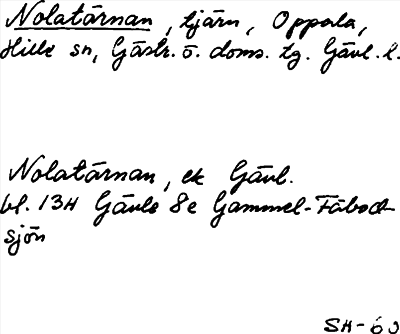 Nolatärnan, tjärn, Oppala,
Hille sn, Gästr. ö. doms. tg. Gävl. l.
Nolatärnan, ek Gävl.
bl. 13H Gävle 8e Gammel-Fäbod-
sjön
SH-60